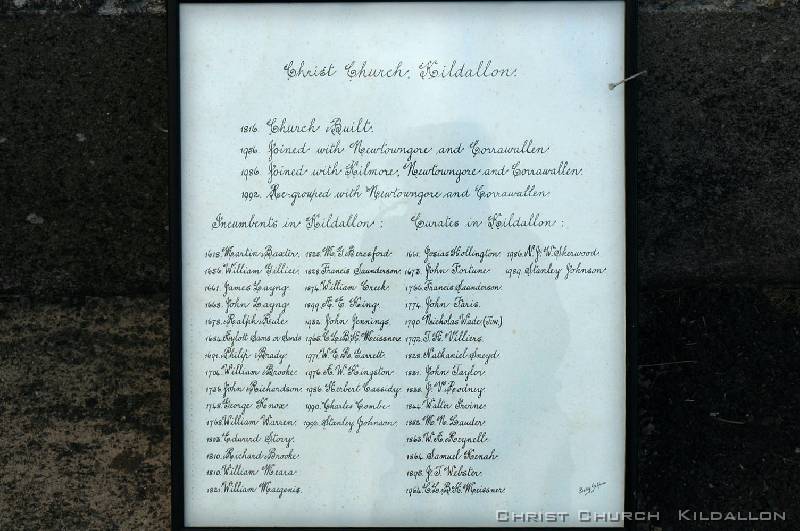 Christ Church, Kildallon.
1816. Church Built.
1936. Joined with Newtowngore and Corrawallen
1986. Joined with Kilmore, Newtowngore and Corrawallen.
1992. Re-grouped with Newtowngore and Corrawallen
Incumbents in Kildallon :
1618. Martin Baxter.
William Gillice
1661. James Layng
1668. John Layng
1678. Ralph Rule
Sylott Sams or Sands
1691. Philip Brady
1704. William Brooke
1736. John Richardson.
George Knox
William Warren
Edward Story.
1810. Richard Brooke
1810. William Meara
1821. William Magenis.
Beresford
Francis Saunderson.
1874. William Creek
1899. King
1932. John Jennings.
1965. Meissner
1971. Garrett
1976. Kingston
Herbert Cassidy
1990. Charles Combe
Stanley Johnson.
Curates in Kildallon :
1661. Josias Hollington
1673. John Fortune
Francis Saunderson
1774. John Faris.
1790. Nicholas Wade (Jun.)
1792. Villiers.
Nathaniel Sneyd.
John Taylor
Rodney
1844. Walter Irvine
Lauder
Roeynell
1864. Samuel Kenah
1898. J. T. Webster
Meissner
1986. N. J. W. Sherwood
1989. Stanley Johnson
Christ Church Kildallon